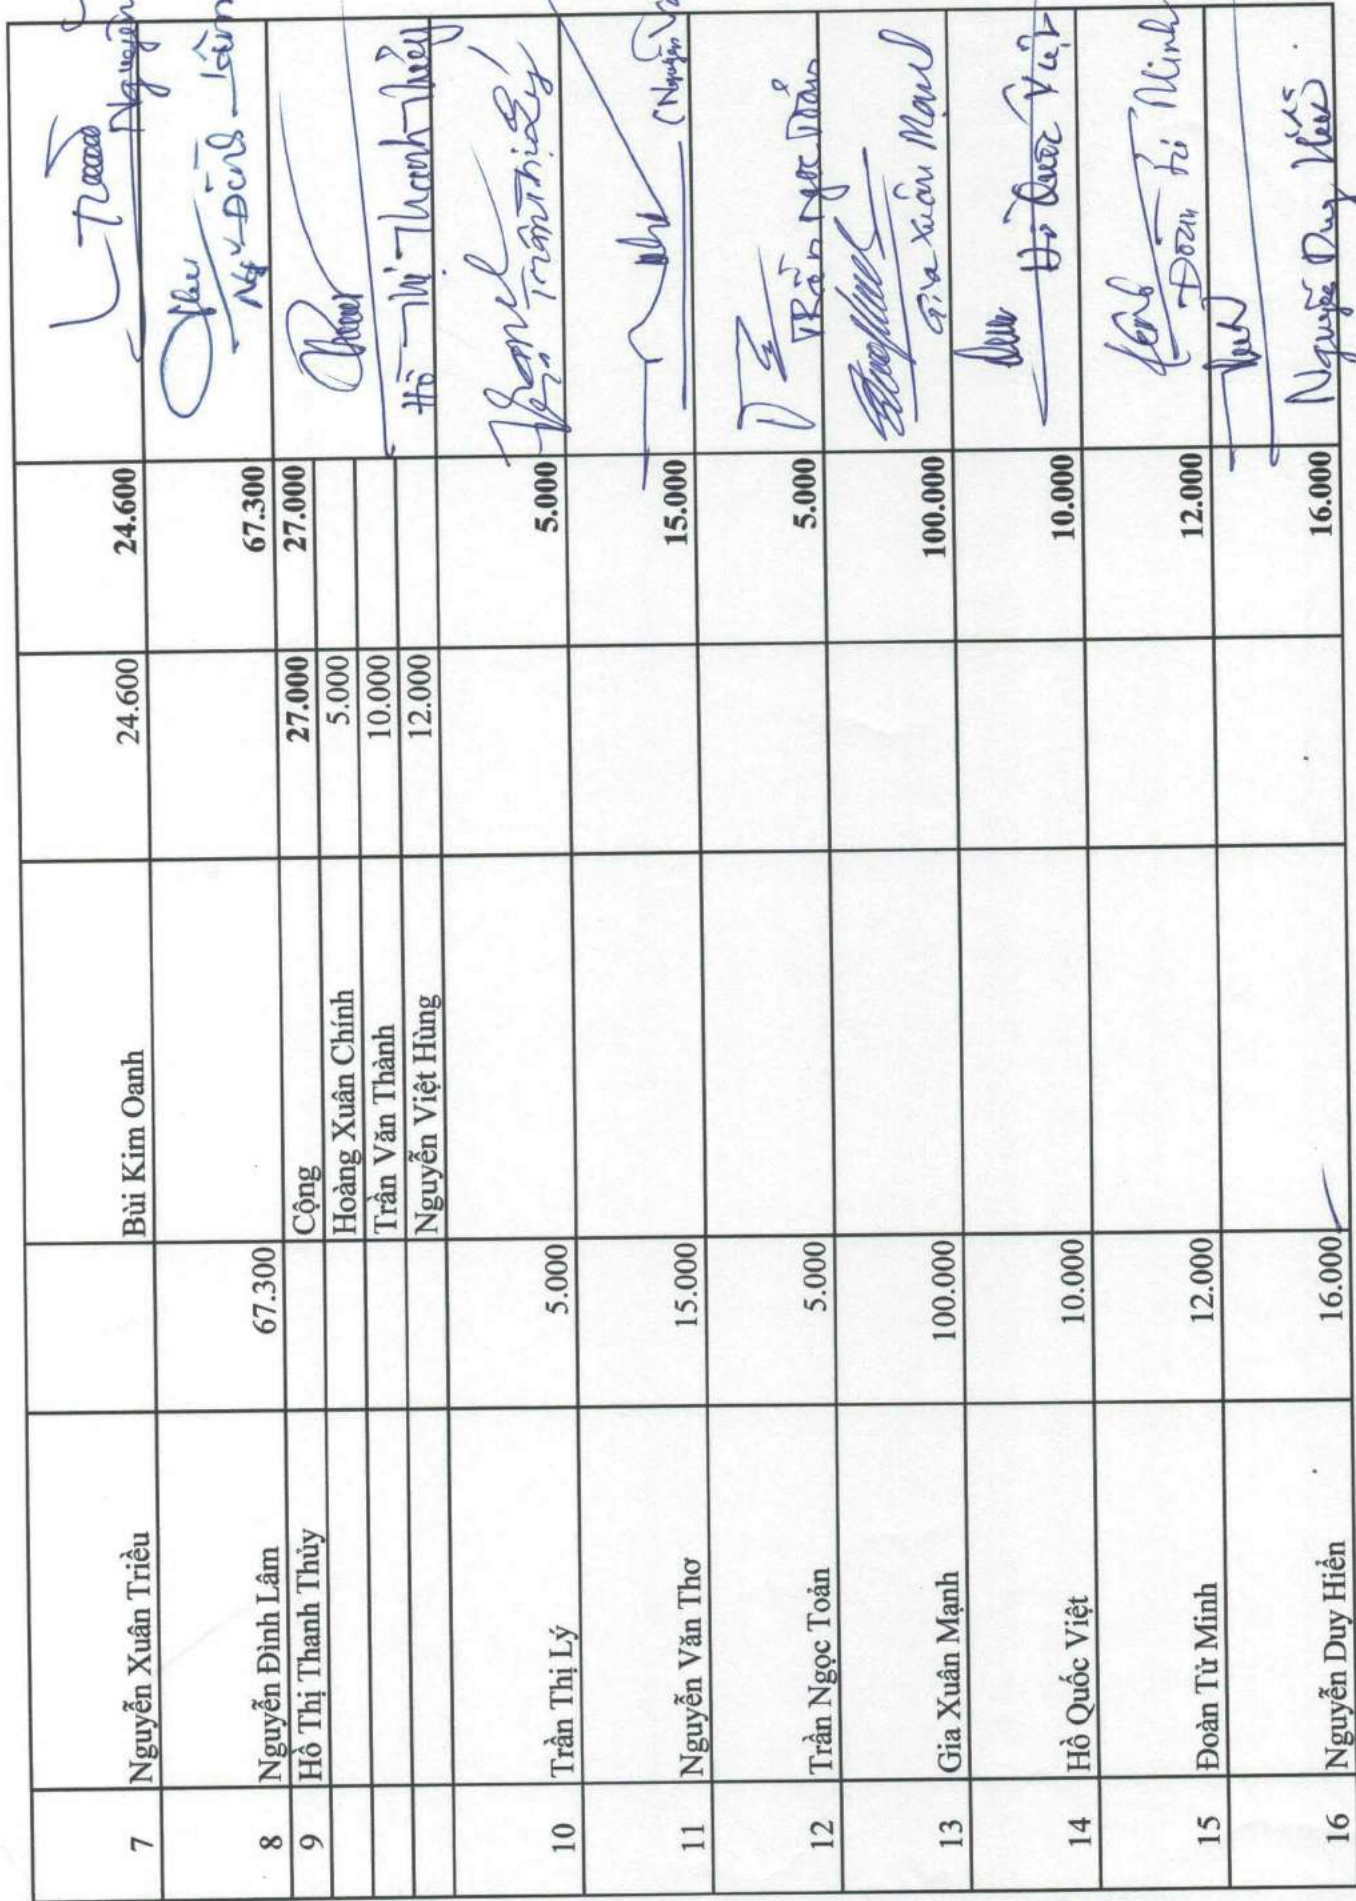 7 Nguyễn Xuân Triều Bùi Kim Oanh 24.600 24.600
Nguyễn
8 Nguyễn Đình Lâm 67.300 67.300
Ngỹ Đình Lâm
9 Hồ Thị Thanh Thủy Cộng 27.000 27.000
Hoàng Xuân Chính 5.000
Trần Văn Thành 10.000
Nguyễn Việt Hùng 12.000
Hồ Thị Thanh Thủy
10 Trần Thị Lý 5.000 5.000
Trần Thị Lý
11 Nguyễn Văn Thơ 15.000 15.000
(Nguyễn
12 Trần Ngọc Toản 5.000 5.000
Trần Ngọc Toản
13 Gia Xuân Mạnh 100.000 100.000
Gia Xuân Mạnh
14 Hồ Quốc Việt 10.000 10.000
Hồ Quốc Việt
15 Đoàn Tử Minh 12.000 12.000
Đoàn Tử Minh
16 Nguyễn Duy Hiển 16.000 16.000
Nguyễn Duy Hiển